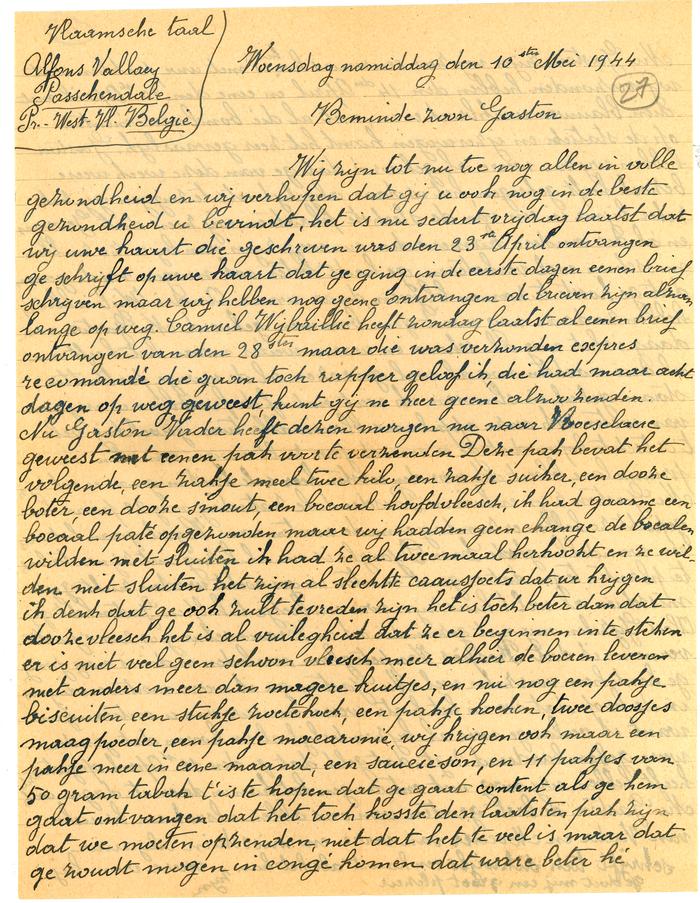 Vlaamsche taal
Alfons Vallaey
Passchendale
Pr.- West-Vl. België
Woensdag namiddag den 10 sten Mei 1944
27
Beminde zoon Gaston
Wij zijn tot nu toe nog allen in volle
gezondheid en wij verhopen dat gij u ook nog in de beste
gezondheid u bevindt, het is nu sedert vrijdag laatst dat
wij uwe kaart die geschreven was den 23 April ontvangen
ge schrijft op uwe kaart dat ge ging in de eerste dagen eenen brief
schrijven maar wij hebben nog geene ontvangen de brieven zijn alzoo
lange op weg. Camiel Wijbaillie heeft zondag laatst al eenen brief
ontvangen van den 28 sten maar die was verzonden expres
recomandé die gaan toch rapper geloof ik, die had maar acht
dagen op weg geweest, kunt gij ne keer geene alzoo zenden.
Nu Gaston Vader heeft dezen morgen nu naar Roeselaere
geweest met eenen pak voor te verzenden Deze pak bevat het
volgende, een zakje meel twee kilo, een zakje suiker, een dooze
boter, een dooze smout, een bocaal hoofdvleesch, ik had gaarne een
bocaal paté opgezonden maar wij hadden geen change de bocalen
wilden niet sluiten ik had ze al tweemaal herkookt en ze wil-
den niet sluiten het zijn al slechte caoutsjoets dat we krijgen
ik denk dat ge ook zult tevreden zijn het is toch beter dan dat
doozevleesch het is al vuilegheid dat ze er beginnen in te steken
er is niet veel geen schoon vleesch meer alhier de boeren leveren
niet anders meer dan magere kuitjes, en nu nog een pakje
biscuiten, een stukje zoetekoek, een pakje koeken, twee doosjes
maagpoeder, een pakje macaronie, wij krijgen ook maar een
pakje meer in eene maand, een saucieson, en 11 pakjes van
50 gram tabak t'is te hopen dat ge gaat content als ge hem
gaat ontvangen dat het toch kosste den laatsten pak zijn
dat we moeten opzenden, niet dat het te veel is maar dat
ge zoudt mogen in congé komen, dat ware beter hé